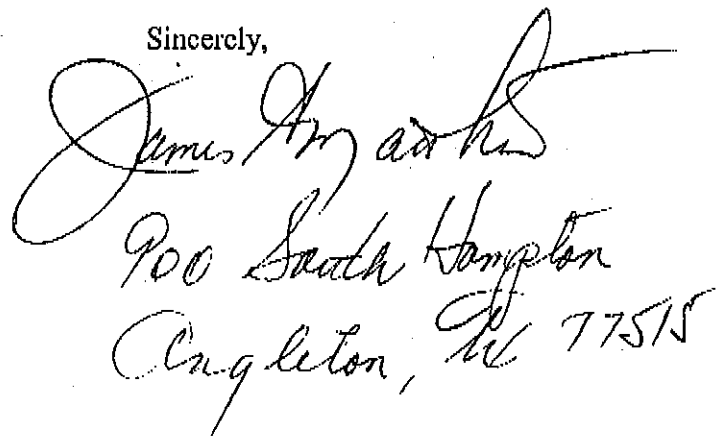 Sincerely,
James
900 South Hampton
Angleton, TX 77515